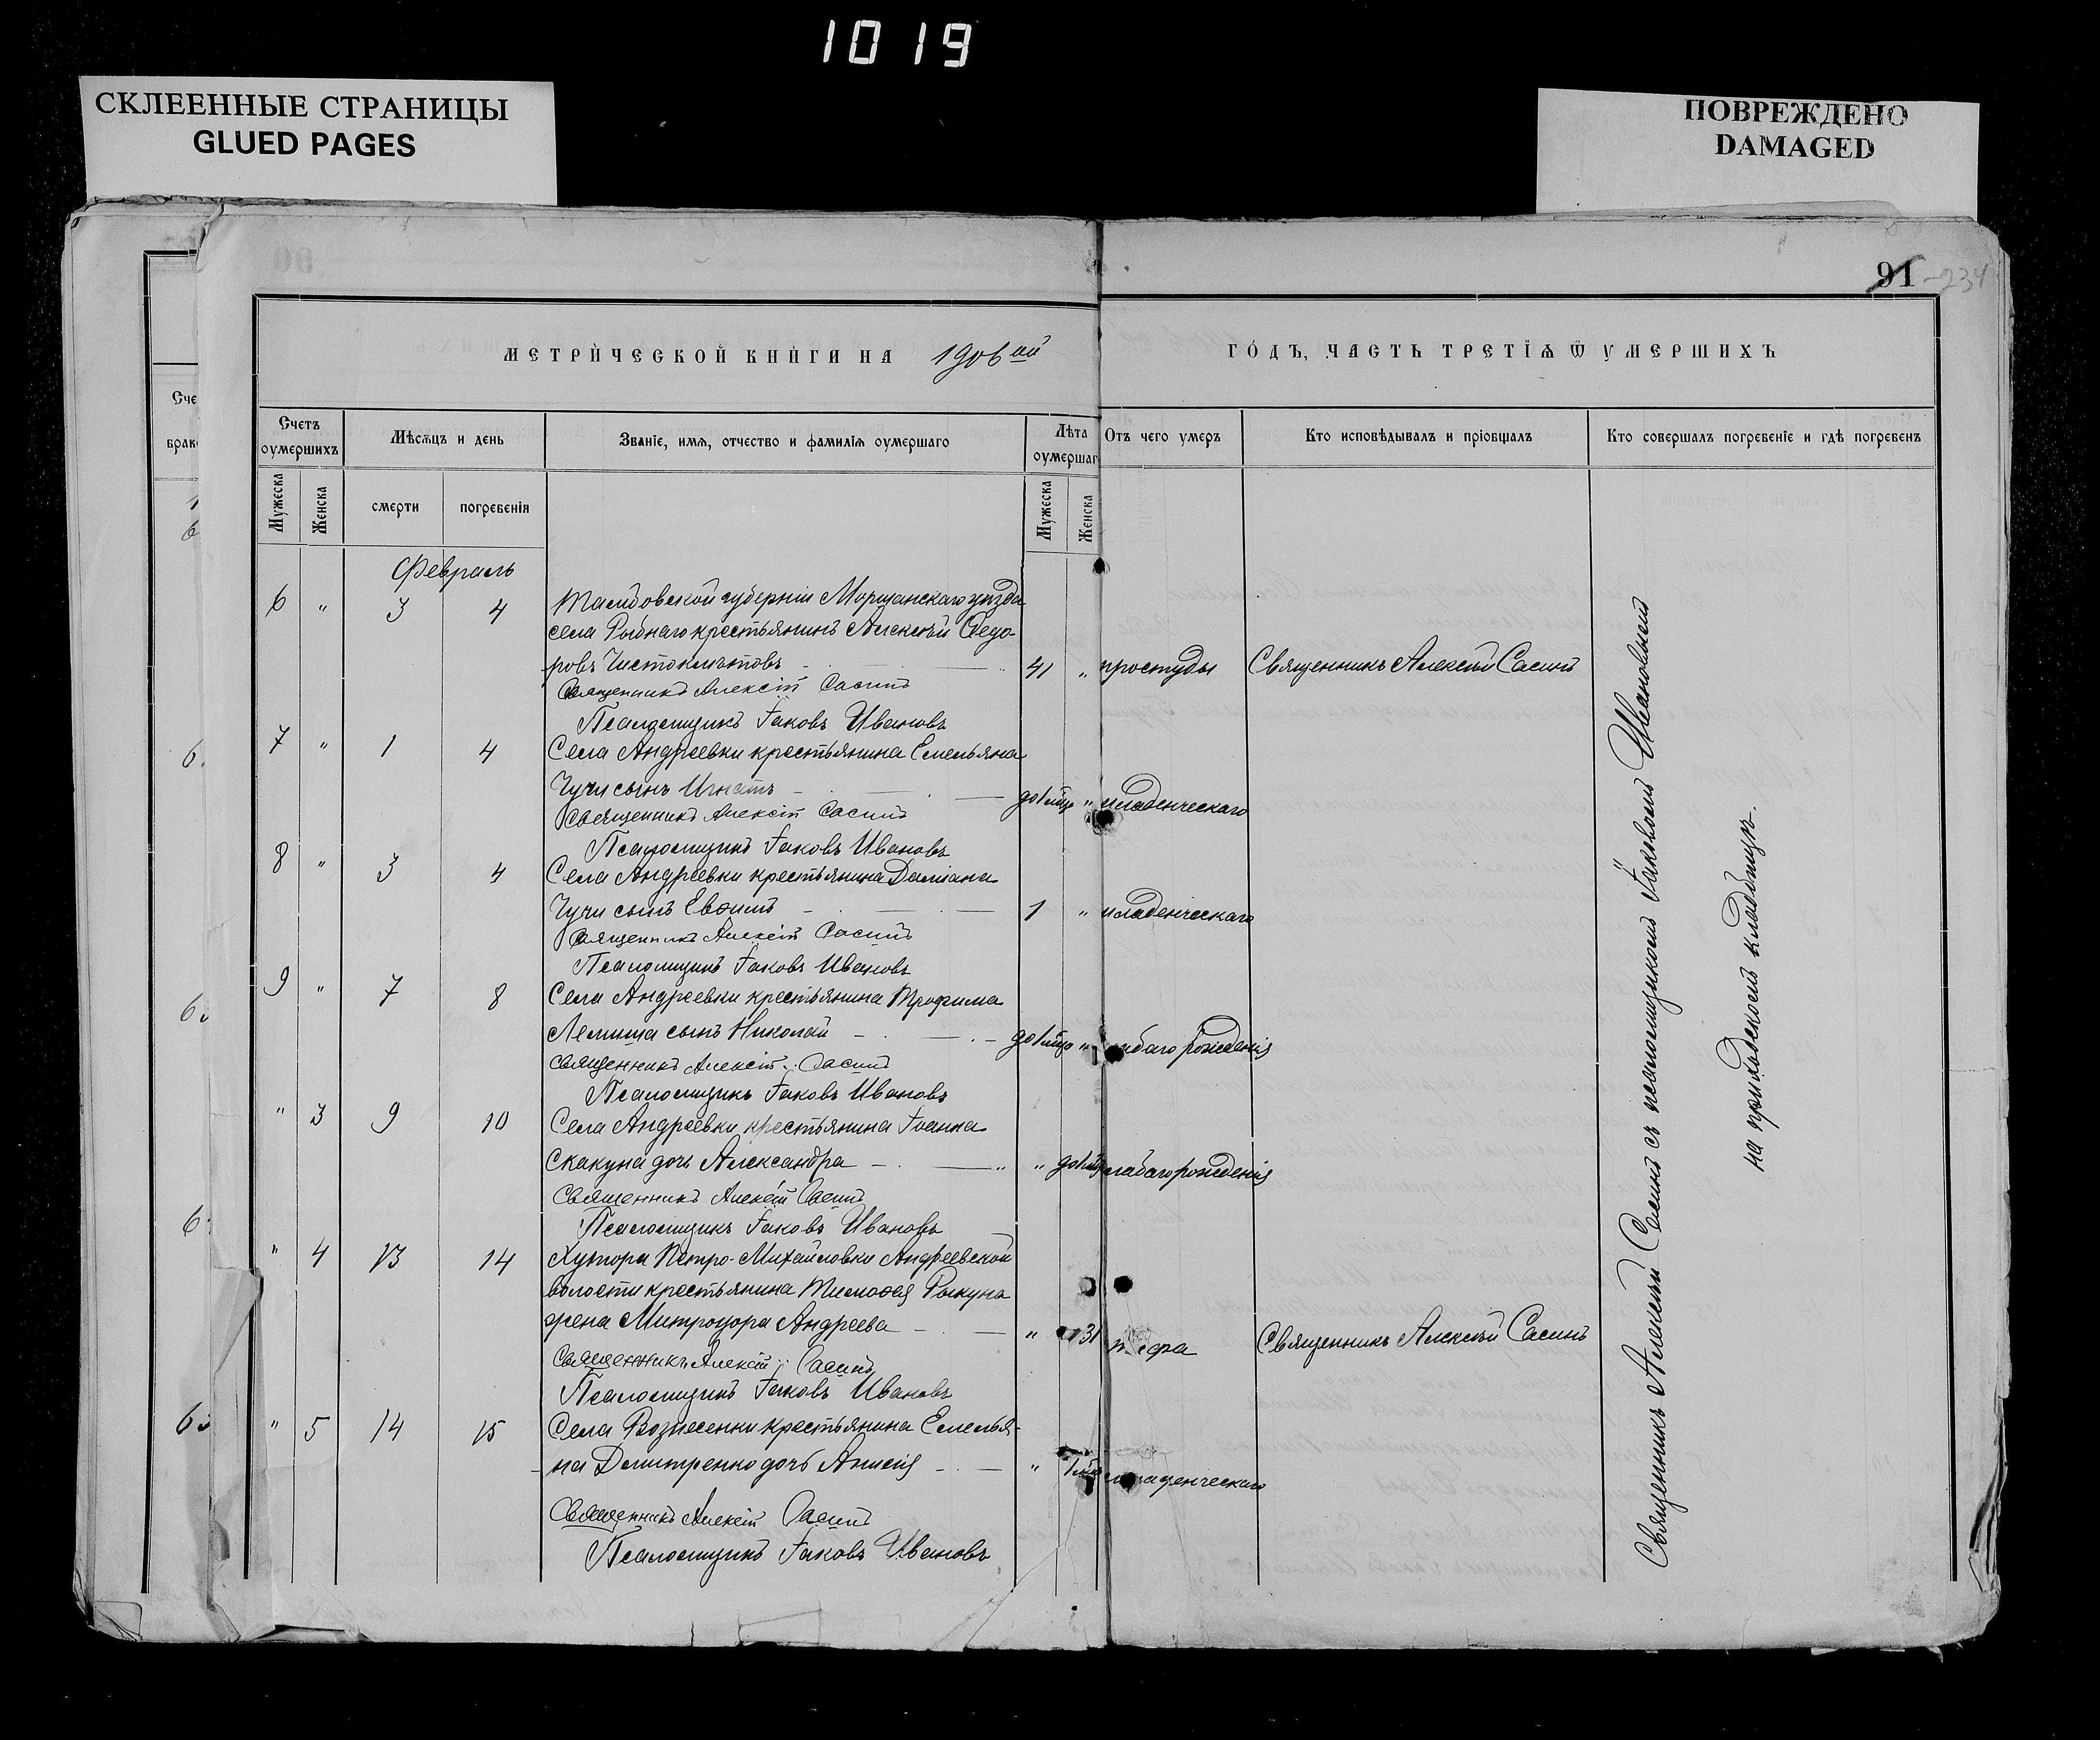 1019
СКЛЕЕННЫЕ СТРАНИЦЫ
GLUED PAGES
ПОВРЕЖДЕНО
DAMAGED
91 -234
МЕТРИЧЕСКОЙ КНИГИ НА 1906ый ГОДЪ, ЧАСТЬ ТРЕТІЯ Ѿ УМЕРШИХЪ
Счетъ оумершихъ
Мѣсяцъ и день
Званіе, имя, отчество и фамилія оумершаго
Лѣта оумершаг
Отъ чего умеръ
Кто исповѣдывалъ и пріобщалъ
Кто совершалъ погребеніе и гдѣ погребенъ
Мужеска Женска смерти погребенія Мужеска Женска
Февраль
6 " 3 4 Тамбовской губерніи Моршанскаго уѣзда
села Рыбнаго крестьянинъ Алексѣй Ѳедо-
ровъ Чистоклѣтовъ 41 " простуды Священникъ Алексѣй Сасинъ
Священникъ Алексій Сасинъ
Псаломщикъ Іаковъ Ивановъ
7 " 1 4 Села Андреевки крестьянина Емельяна
Чучи сынъ Игнатъ до 1 мѣс " младенческаго
Священникъ Алексій Сасинъ
Псаломщикъ Іаковъ Ивановъ
8 " 3 4 Села Андреевки крестьянина Даміана
Чучи сынъ Евѳимъ 1 " младенческаго
Священникъ Алексій Сасинъ
Псаломщикъ Іаковъ Ивановъ
9 " 7 8 Села Андреевки крестьянина Трофима
Лемиша сынъ Николай до 1 мѣс " рожденія
Священникъ Алексій Сасинъ
Псаломщикъ Іаковъ Ивановъ
" 3 9 10 Села Андреевки крестьянина Іоанна
Скакуна дочь Александра " до 1 слабаго рожденія
Священникъ Алексій Сасинъ
Псаломщикъ Іаковъ Ивановъ
" 4 13 14 Хутора Петро-Михайловки Андреевской
волости крестьянина Тимоѳея Рыкуна
жена Митродора Андреева " 31 Священникъ Алексѣй Сасинъ
Священникъ Алексій Сасинъ
Псаломщикъ Іаковъ Ивановъ
" 5 14 15 Села Вознесенки крестьянина Емелья-
на Дмитренко дочь Анисія " 1 младенческаго
Священникъ Алексій Сасинъ
Псаломщикъ Іаковъ Ивановъ
Священникъ Алексѣй Сасинъ съ псаломщикомъ Іаковомъ Ивановымъ
на приходскомъ кладбищѣ.